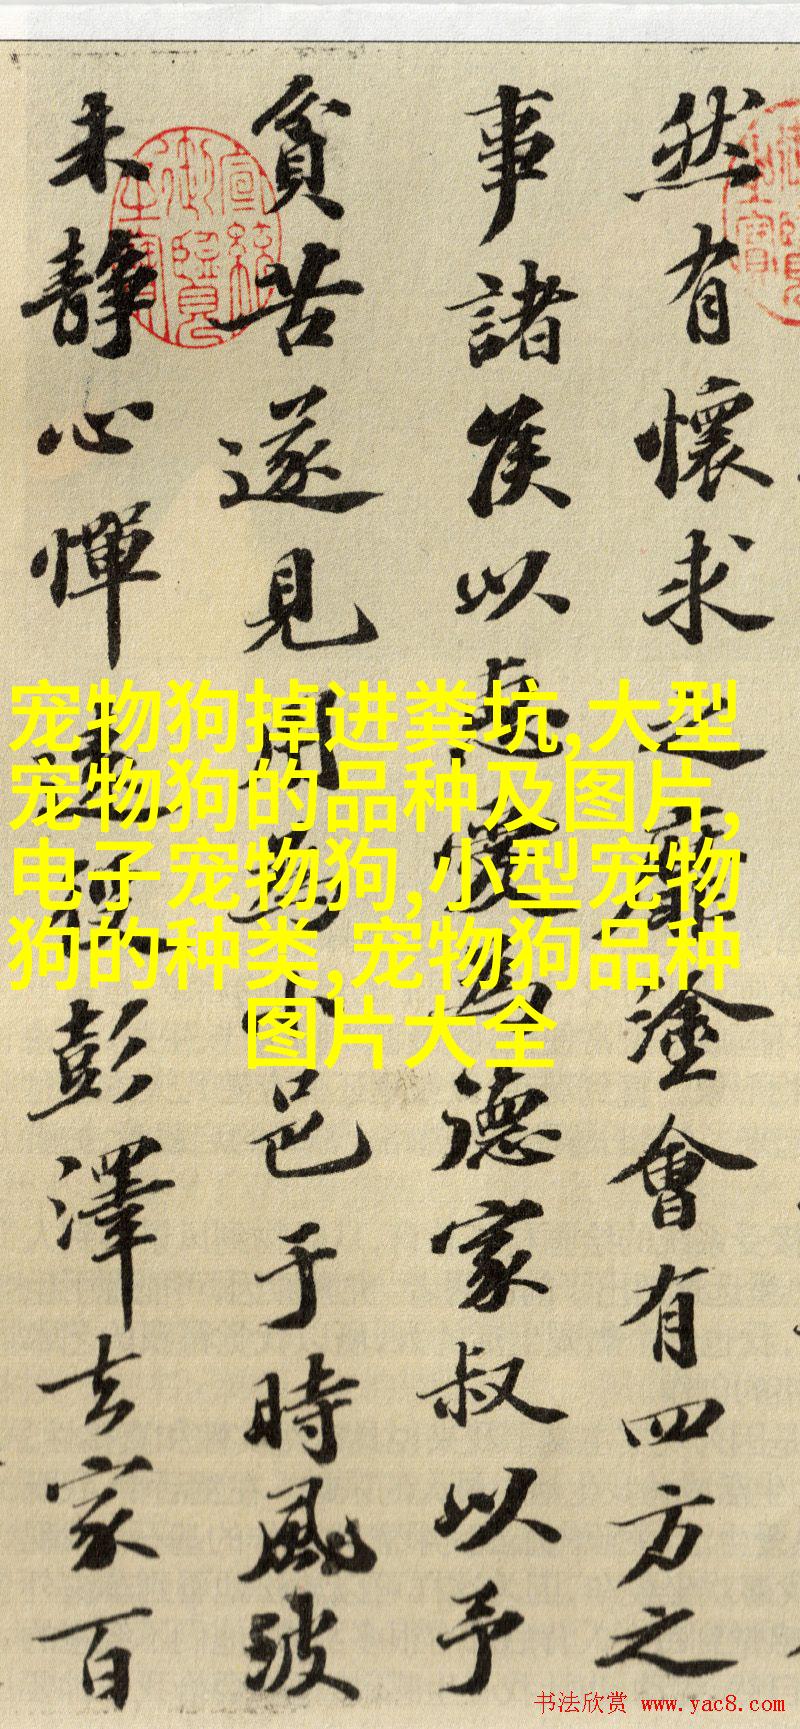 然有懷求之靡塗會有四方之
事諸侯以惠愛為德家叔以予
貧苦遂見用為小邑于時風波
未靜心憚遠役彭澤去家百
宣統御覽之寶
宠物狗掉进粪坑,大型
宠物狗的品种及图片,
电子宠物狗,小型宠物
狗的种类,宠物狗品种
图片大全
书法欣赏 www.yac8.com